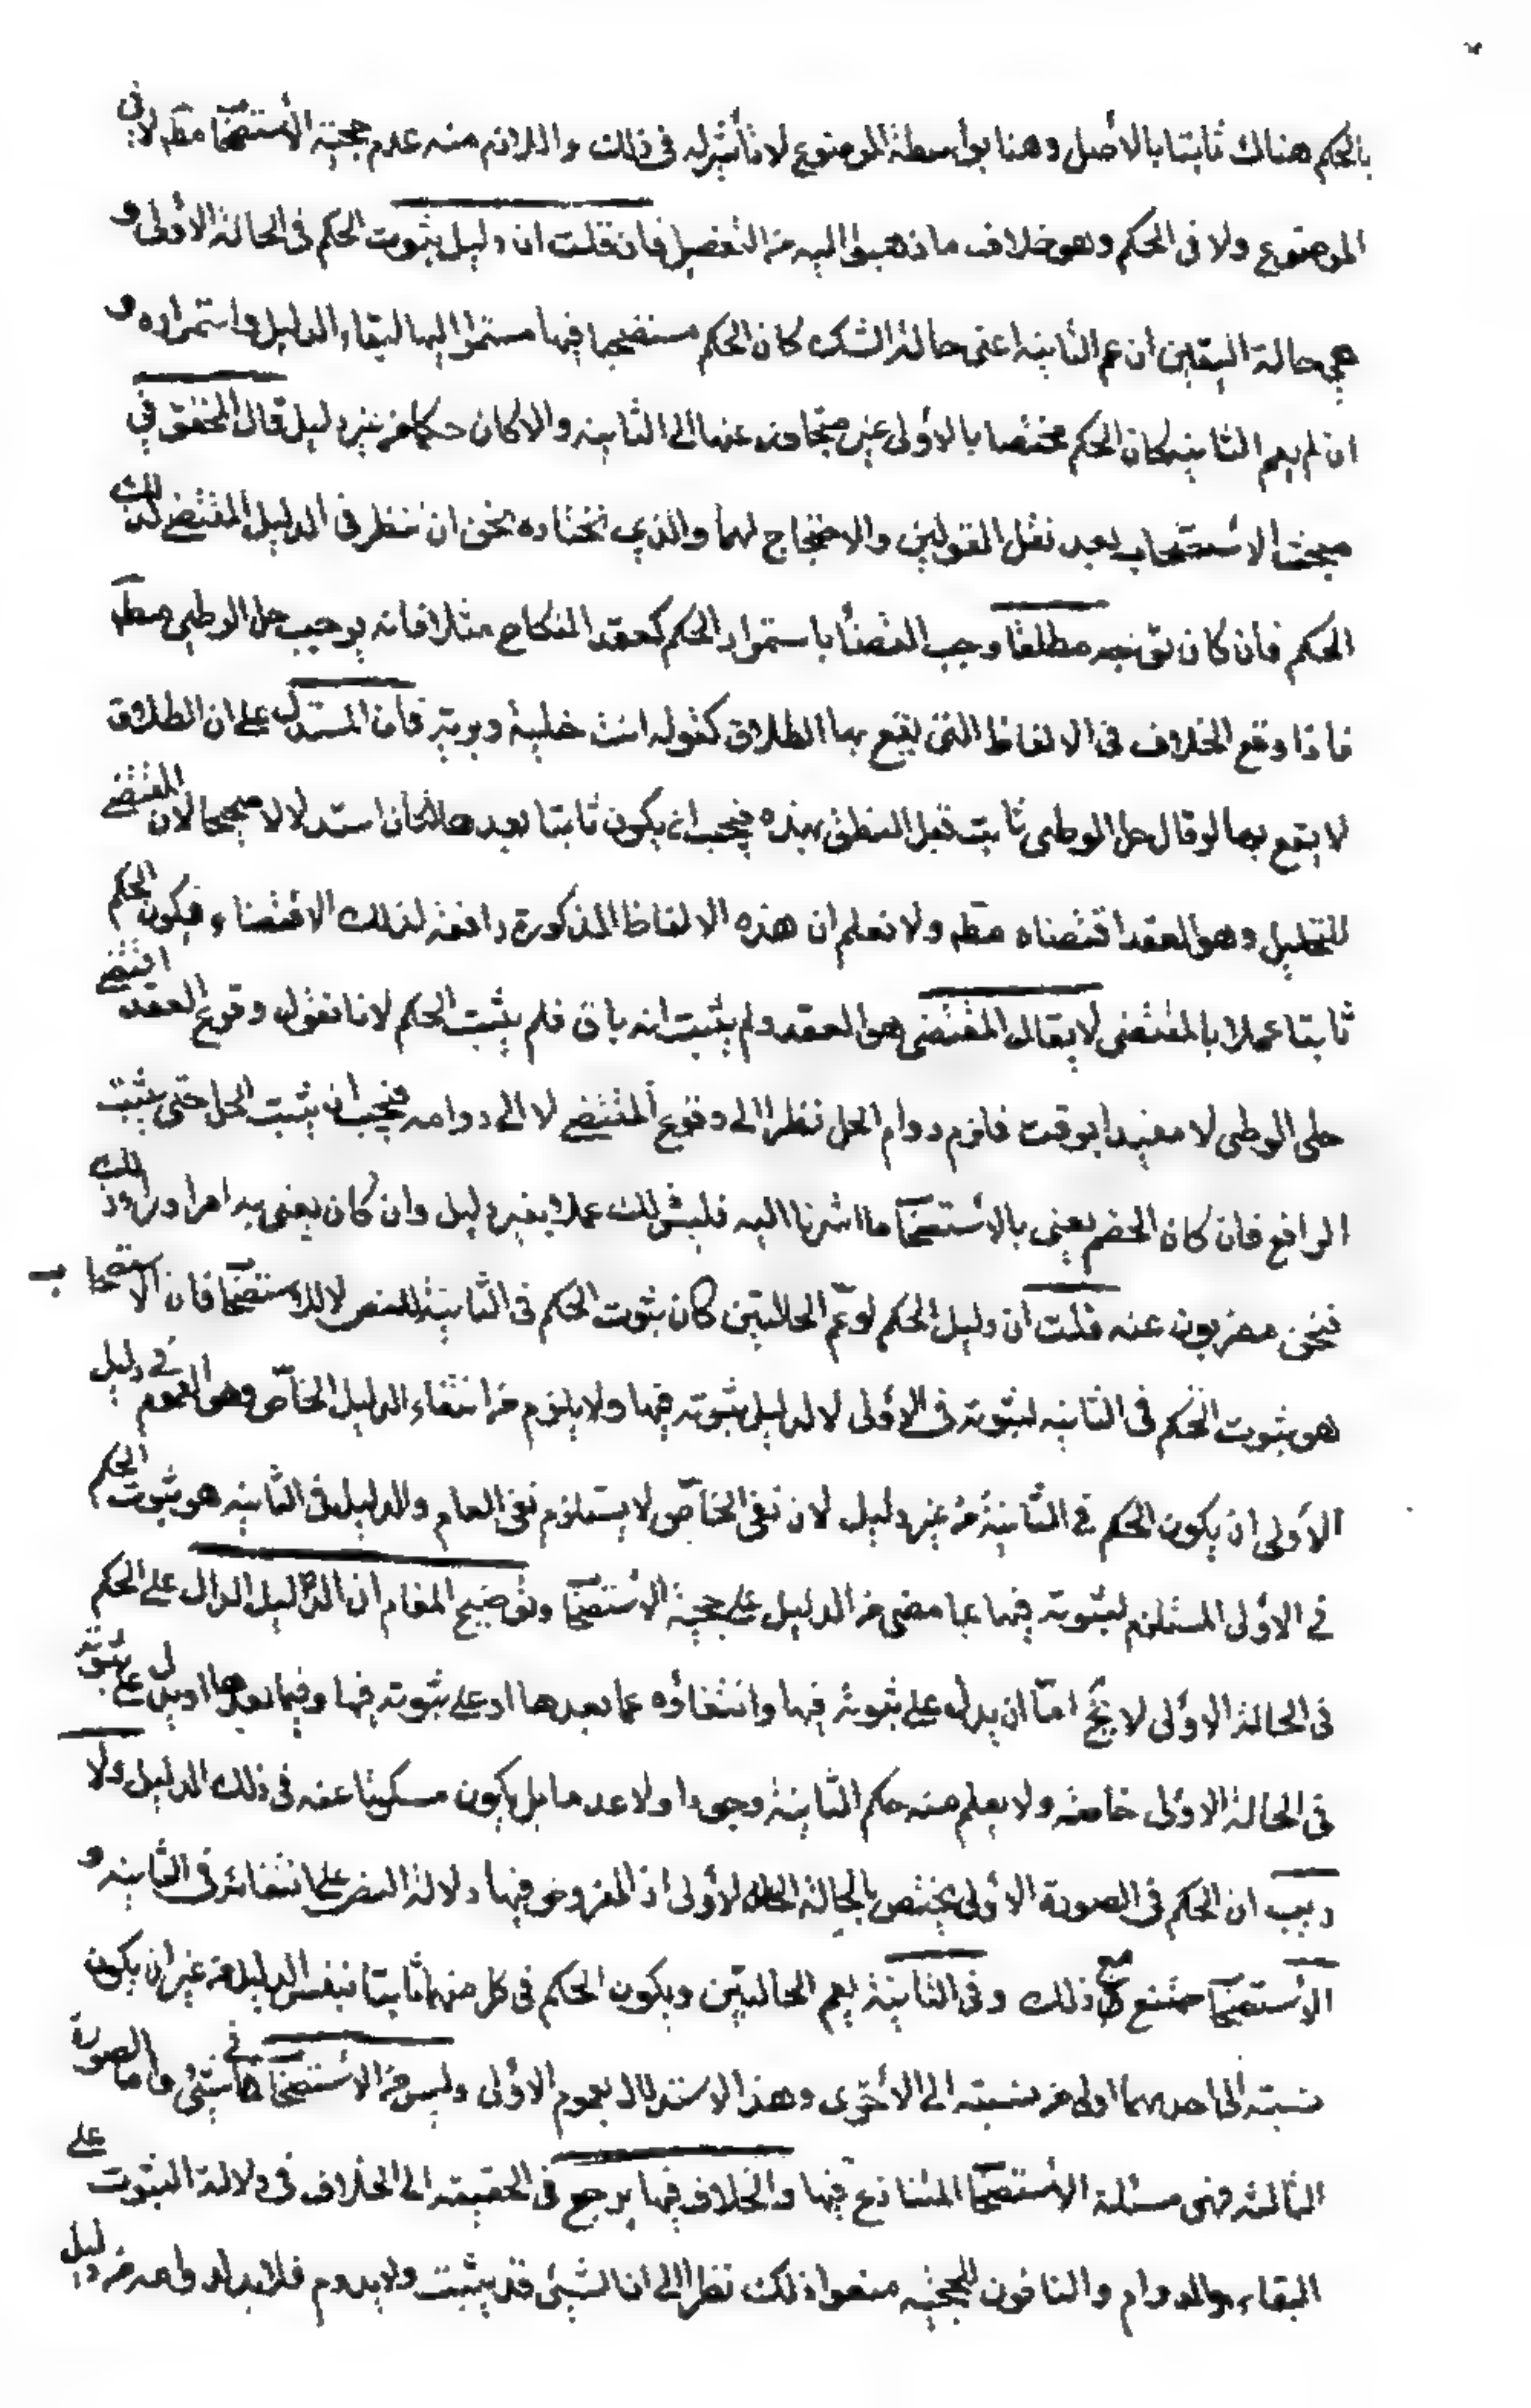 بالحكم هناك ثابتا بالأصل وهنا بواسطة الموضوع لا تأثير له في ذلك واللازم منه عدم حجية الأستصحا مطـ لا في
الموضوع ولا فى الحكم وهو خلاف ما ذهبوا اليه من التفصيل فان قلت ان دليل ثبوت الحكم فى الحالة الأولى و
هي حالة اليقين ان عم الثانية اعنى حالة الشك كان الحكم مستصحبا فيها مستمرا اليها لبقاء الدليل واستمراره و
ان لم يعم الثانية كان الحكم مختصا بالأولى غير متجاوز عنها الى الثانية والا كان حكما من غير دليل قال المحقق في
مبحث الأستصحاب بعد نقل القولين والاحتجاج لهما والذي نختاره نحن ان ننظر فى الدليل المقتضي لذلك
الحكم فان كان يوجبه مطلقا وجب القضأ باستمرار الحكم كعقد النكاح مثلا فانه يوجب حل الوطي مطـ
فاذا وقع الخلاف فى الالفاظ التى يقع بها الطلاق كقوله انت خلية وبرية فان المستدل على ان الطلاق
لا يقع بها لو قال حل الوطى ثابت قبل النطق بهذه فيجب ان يكون ثابتا بعدها لكان استدلالا صحيحا لان المقتضي
للتحليل وهو العقد اقتضاه مطـ ولا نعلم ان هذه الالفاظ المذكورة رافعة لذلك الاقتضاء فيكون الحكم
ثابتا عملا بالمقتضى لا يقال المقتضى هو العقد ولم يثبت انه باق فلم يثبت الحكم لانا نقول وقوع العقد اقتضي
حل الوطى لا مقيدا بوقت فلزم دوام الحل نظرا الى وقوع المقتضي لا الى دوامه فيجب ان يثبت الحل حتى يثبت
الرافع فان كان الخصم يعنى بالأستصحا ما اشرنا اليه فليس ذلك عملا بغير دليل وان كان يعنى به امرا وراء ذلك
فنحن مضربون عنه قلت ان دليل الحكم لو عم الحالتين كان ثبوت الحكم فى الثانية للنص لا للاستصحا فان الاستصحاب
هو ثبوت الحكم فى الثانية لثبوته فى الأولى لا لدليل ثبوته فيها ولا يلزم من انتفاء الدليل الخاص وهو العموم في دليل
الأولى ان يكون الحكم في الثانية من غير دليل لان نفى الخاص لا يستلزم نفى العام والدليل فى الثانية هو ثبوت الحكم
في الأولى المستلزم لثبوته فيها بما مضى من الدليل على حجية الأستصحا وتوضيح المقام ان الدليل الدال على الحكم
فى الحالة الأولى لا يخ اما ان يدل على ثبوته فيها وانتفاؤه عما بعدها او على ثبوته فيها وفيما بعدها او يدل على ثبوته
فى الحالة الاولى خاصة ولا يعلم منه حكم الثانية وجودا ولا عدما بل يكون مسكوتا عنه فى ذلك الدليل ولا
ريب ان الحكم فى الصورة الأولى يختص بالحالة الأولى اذ المفروض فيها دلالة النص على انتفائه فى الثانية و
الأستصحا ممتنع مع ذلك وفى الثانية يعم الحالتين ويكون الحكم فى كل منهما ثابتا بنفس الدليل من غير ان يكون
نسبته الى احدهما اولى من نسبته الى الأخرى وهذا الاستدلال بعموم الأولى وليس من الأستصحا في شئ واما الصورة
الثالثة فهى مسئلة الأستصحا المتنازع فيها والخلاف فيها يرجع فى الحقيقة الى الخلاف فى دلالة الثبوت على
البقاء والدوام والنافون للحجية منعوا ذلك نظرا الى ان الشئ قد يثبت ولا يدوم فلا بد لدوامه من دليل